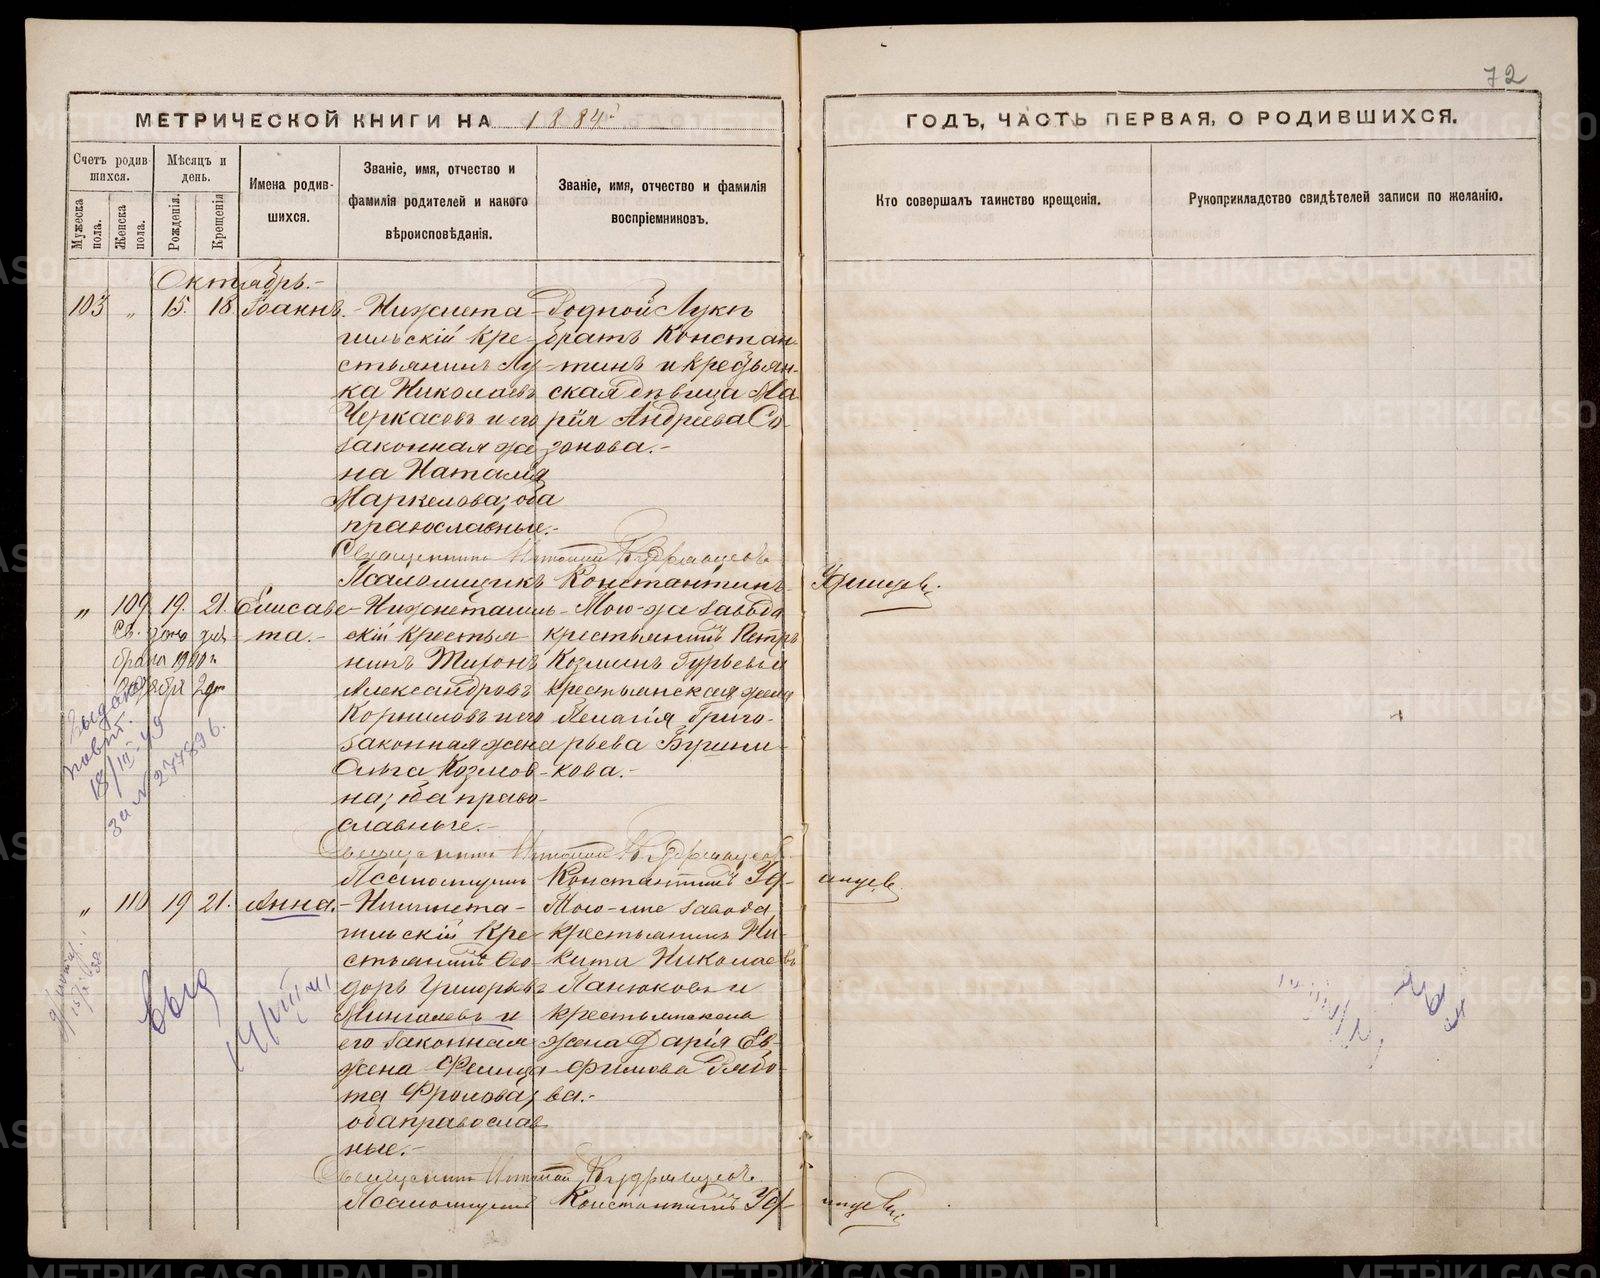 72
МЕТРИЧЕСКОЙ КНИГИ НА 1884й
ГОДЪ, ЧАСТЬ ПЕРВАЯ, О РОДИВШИХСЯ.
Счетъ родив-
шихся.
Мужеска пола.
Женска пола.
Мѣсяцъ и
день.
Рожденія.
Крещенія
Имена родив-
шихся.
Званіе, имя, отчество и
фамилія родителей и какого
вѣроисповѣданія.
Званіе, имя, отчество и фамилія
воспріемниковъ.
Кто совершалъ таинство крещенія.
Рукоприкладство свидѣтелей записи по желанію.
Октябрь.-
103 " 15. 18. Іоаннъ.
Нижнета-
гильскій кре-
стьянинъ Лу-
ка Николаевъ
Черкасовъ и его
законная же
на Наталія
Маркелова; оба
православные.-
Родной Луки
братъ Констан-
тинъ и крестьян-
ская дѣвица Ма
рія Андреева Со-
зонова.-
Священникъ Кудрявцевъ
Псаломщикъ Константинъ
" 109 19. 21. Елисаве-
та.-
брака 1900 г.
октября
Нижнетагиль-
скій крестья-
нинъ Тихонъ
Александровъ
Корниловъ и его
законная жена
Ольга Козмов-
на; оба право-
славные.-
Того-же завода
крестьянинъ Петръ
Козминъ Гурьевъ и
крестьянская жена
Пелагія Григо-
рьева
кова.-
Выдано
повт.
18/III-49
за № 277896.
Священникъ Кудрявцевъ
Псаломщикъ Константинъ
" 110 19 21. Анна.-
Нижнета-
гильскій кре-
стьянинъ Ѳео-
доръ Григорьевъ
и
его законная
жена Фелица
та Фролова;
оба православ
ные.-
Того-же завода
крестьянинъ Ни-
кита Николаевъ
Панюковъ и
крестьянская
жена Дарія Ев-
фимова Рябо-
ва.-
Выд
Священникъ Кудрявцевъ
Псаломщикъ Константинъ
METRIKI.GASO-URAL.RU